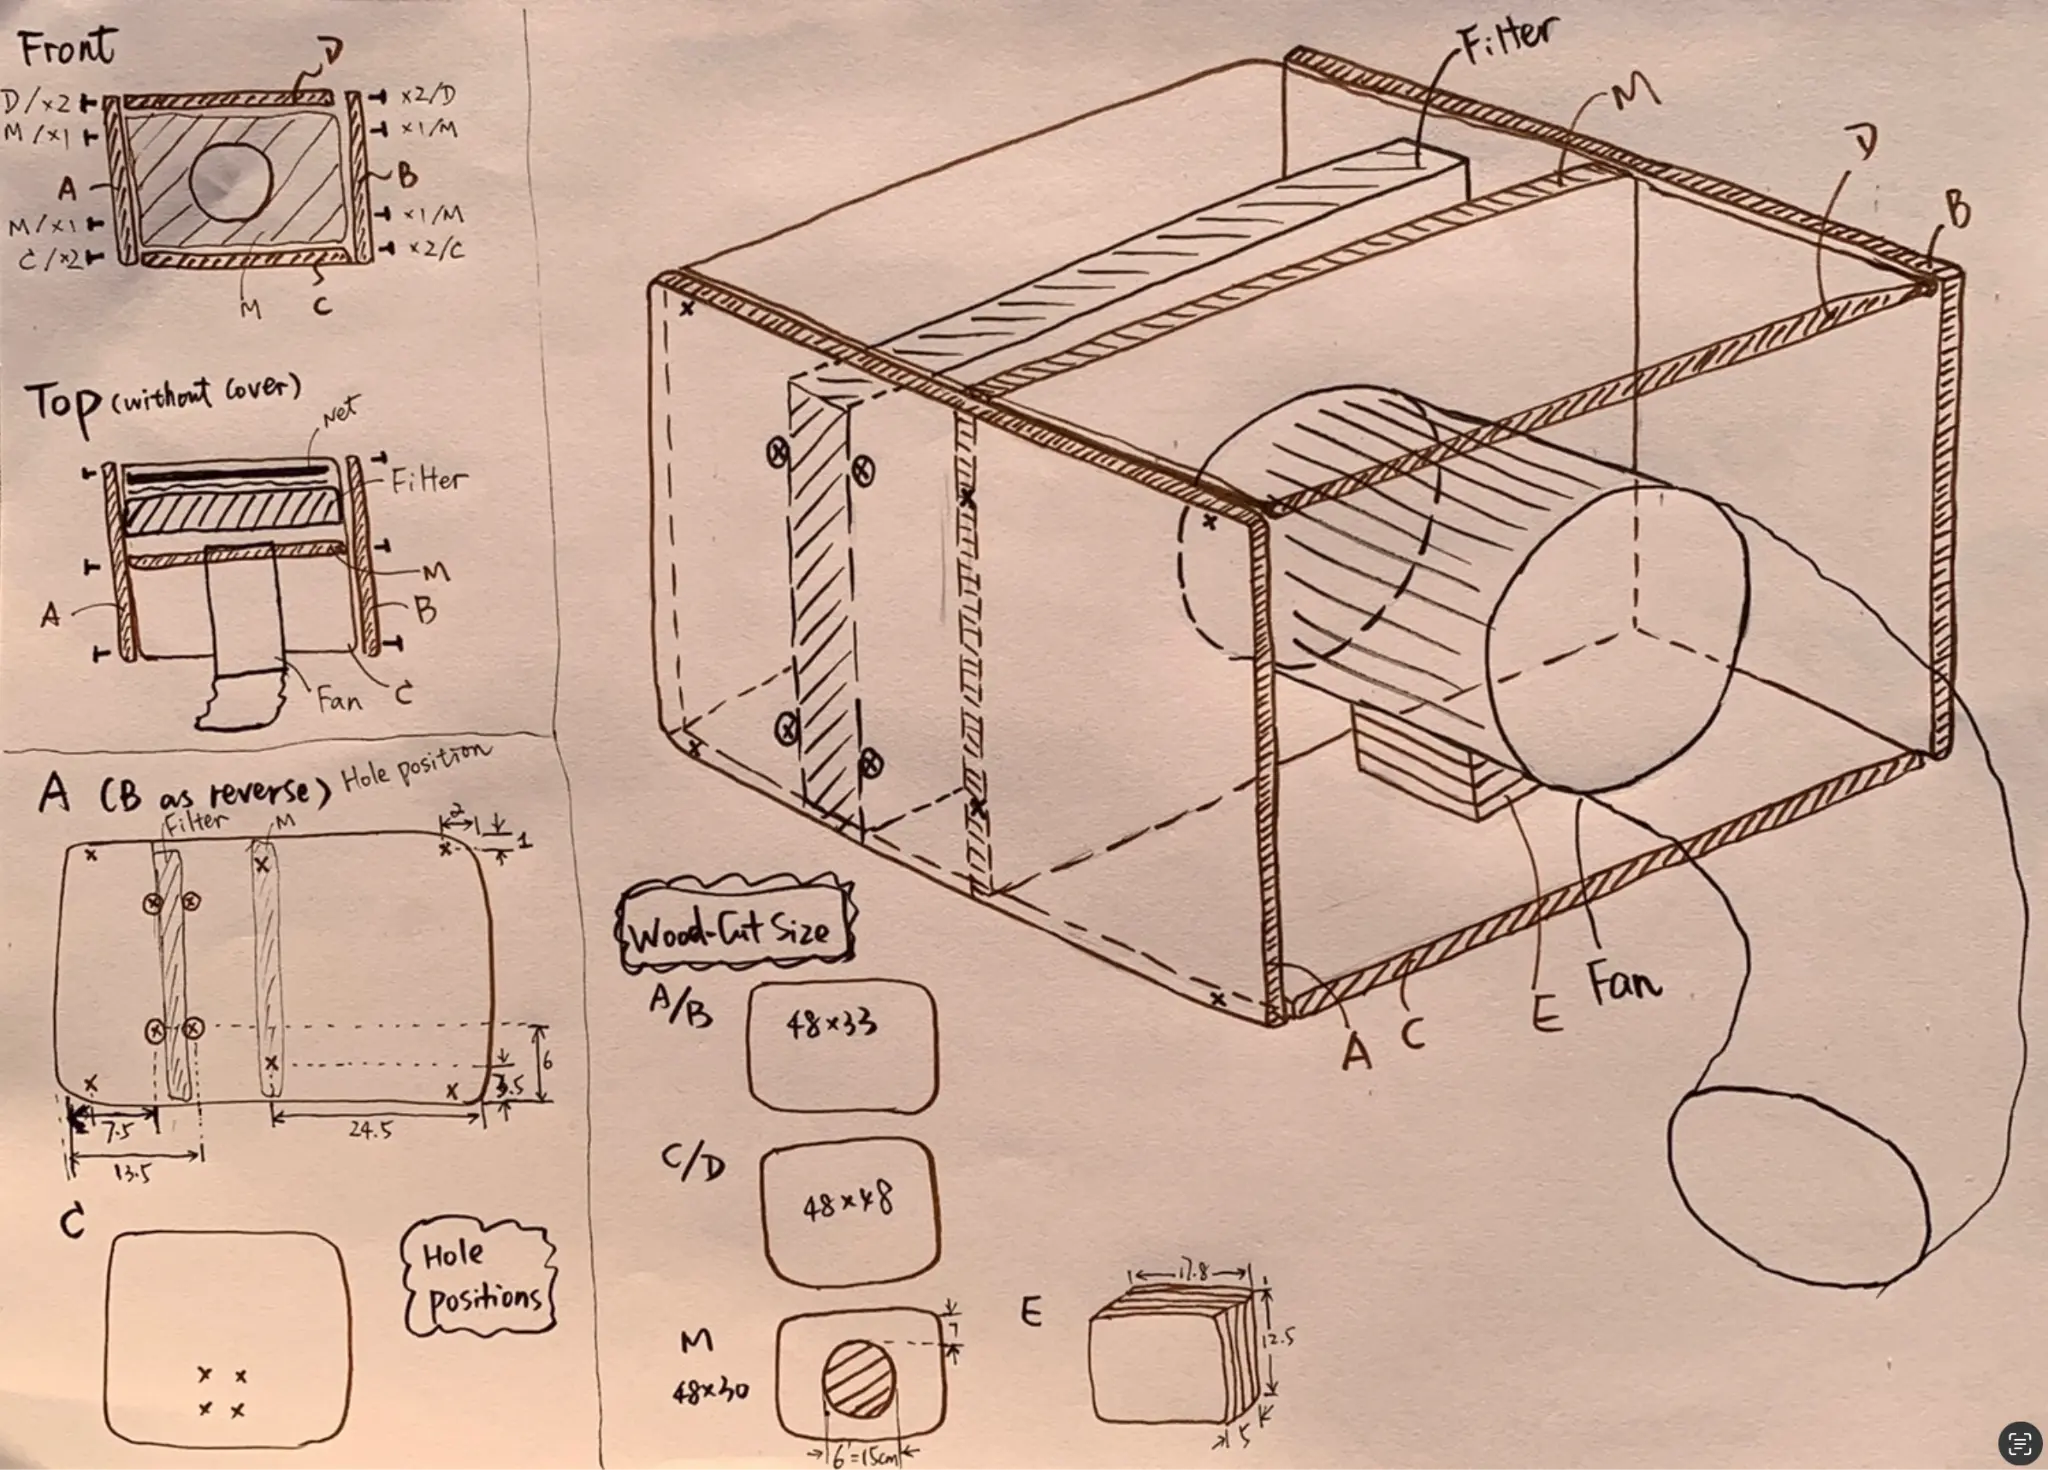 Front
D
D/x2
x2/D
M/x1
x1/M
A
B
M/x1
x1/M
C/x2
x2/C
M
C
Top (without Cover)
Net
Filter
M
A
B
Fan
C
A (B as reverse) Hole position
Filter
M
2
1
6
3.5
7.5
24.5
13.5
C
Hole
positions
Filter
M
D
B
A
C
E
Fan
Wood-Cut Size
A/B
48x33
C/D
48x48
M
48x30
7
6"=15cm
E
17.8
12.5
15